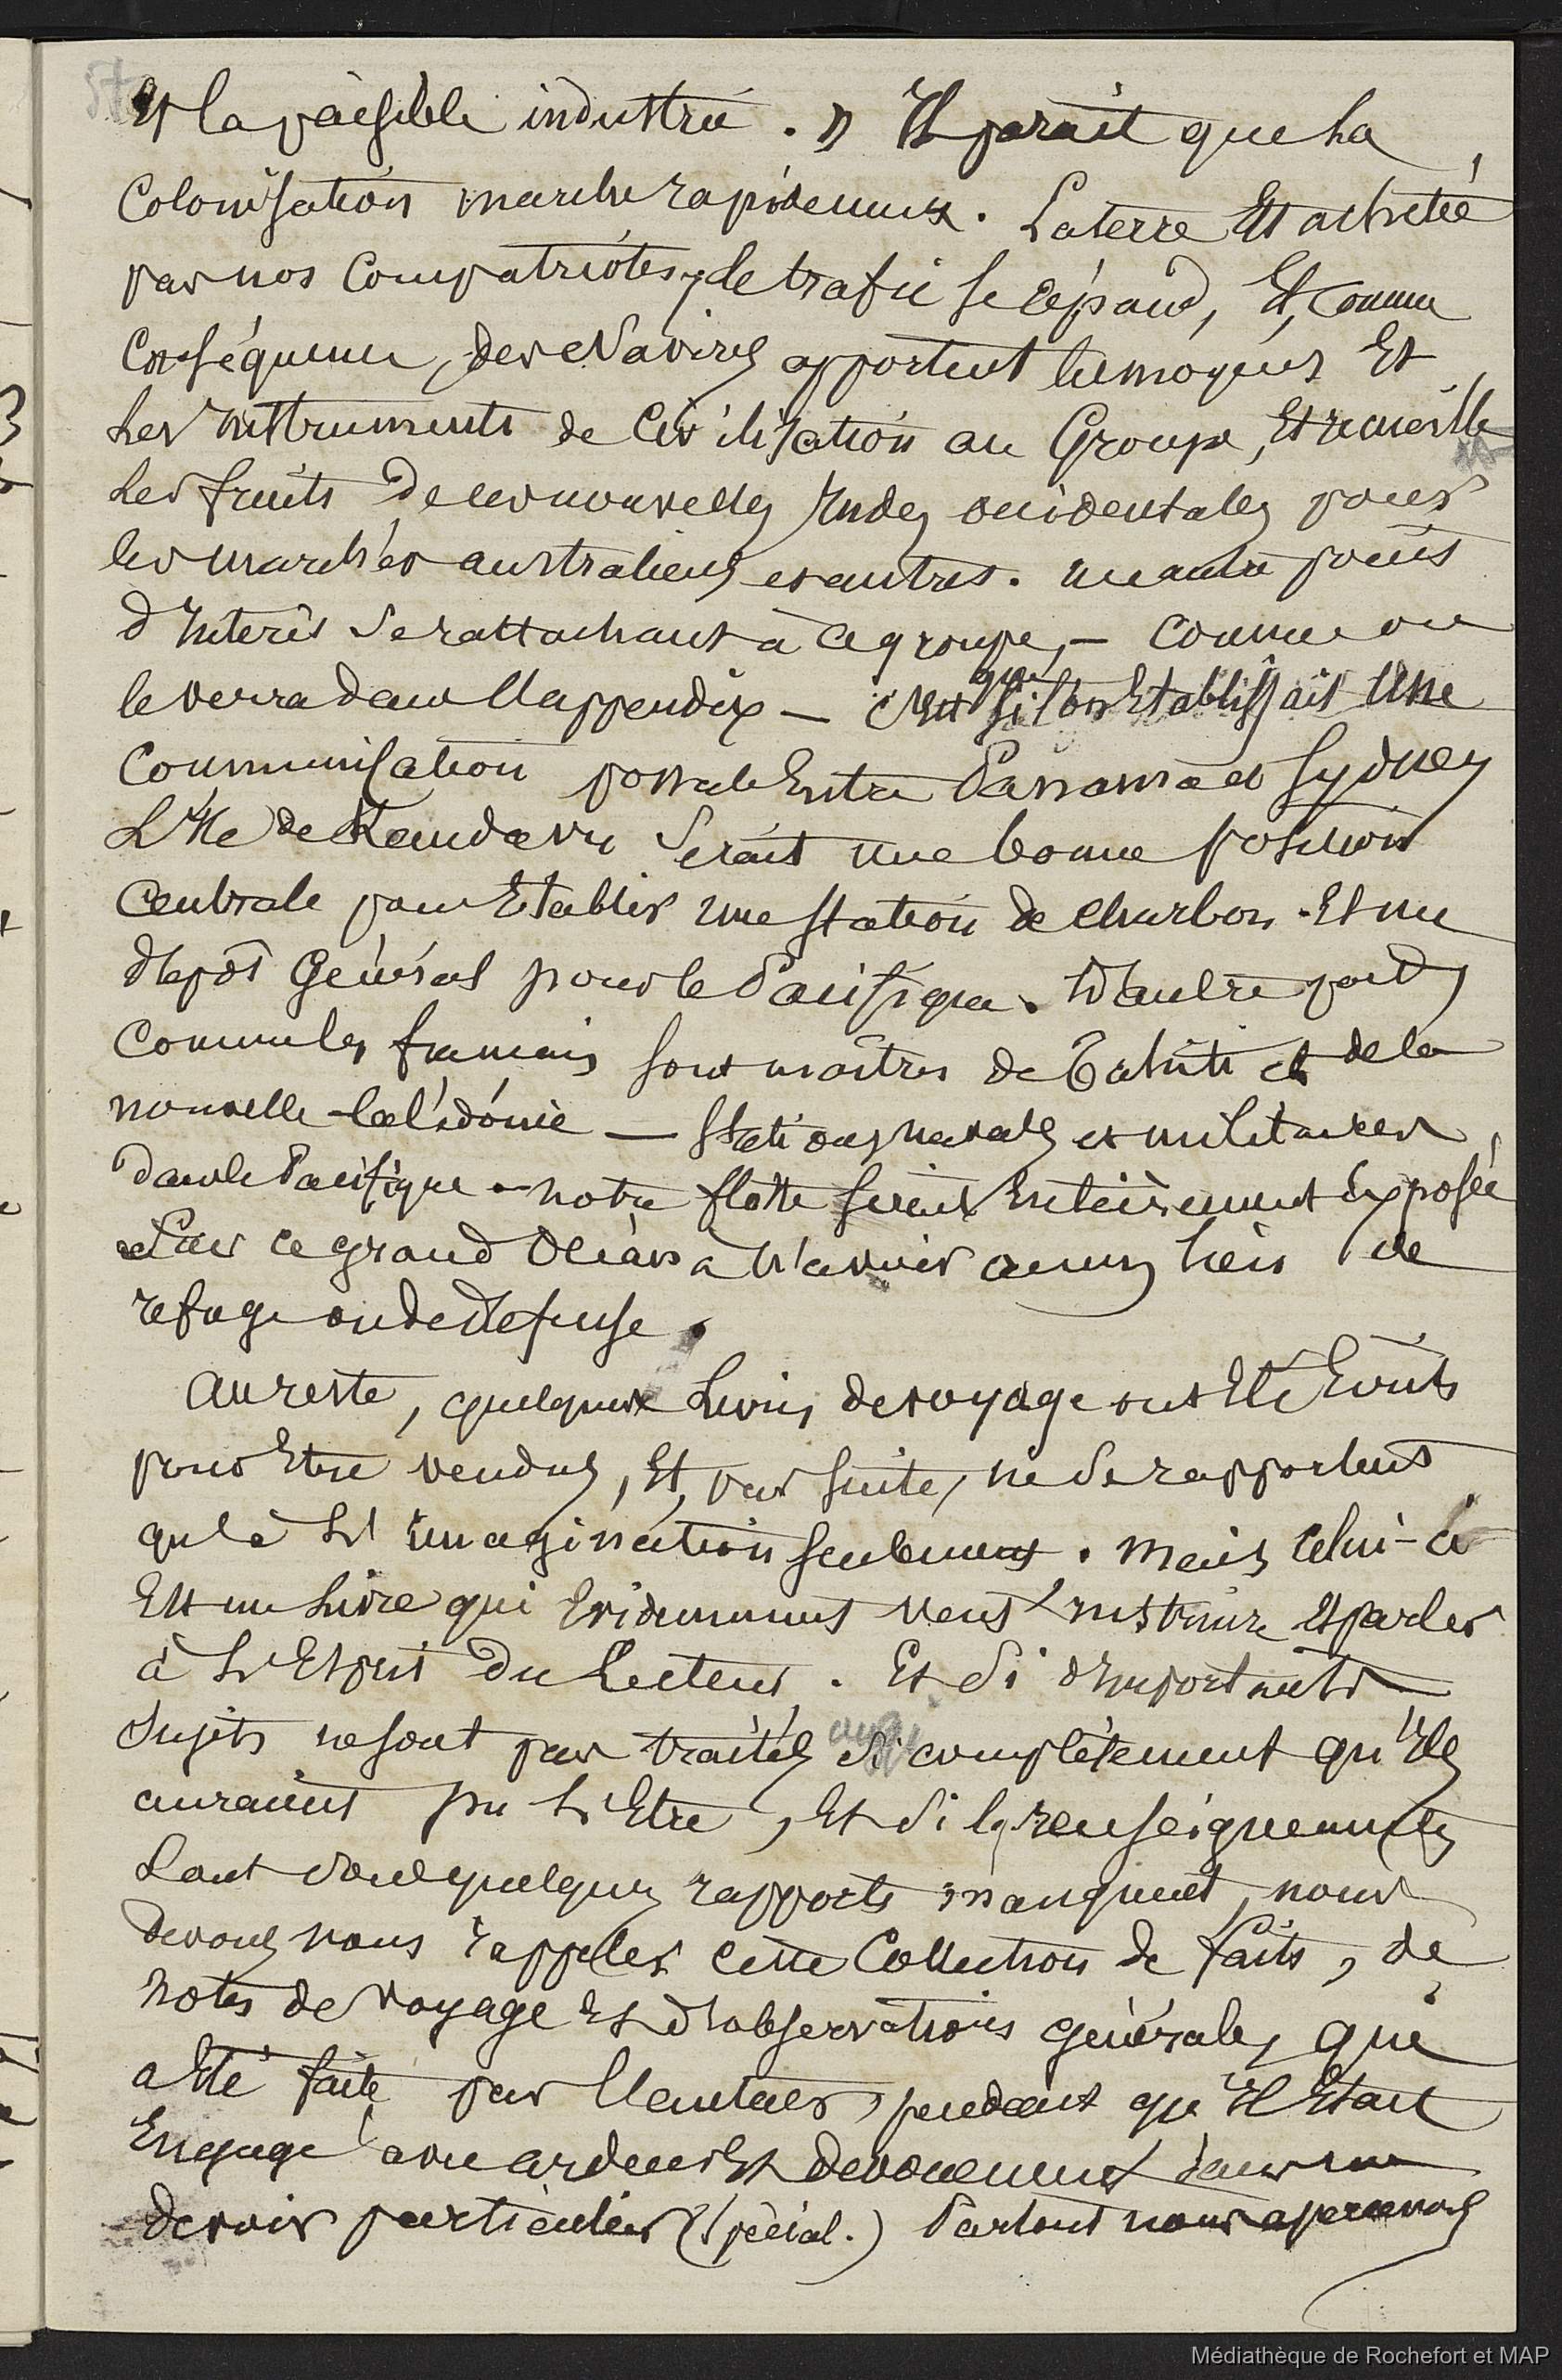 57
Et la paisible industrie. » Il parait que la
Colonisation marche rapidement. La terre Est achetée
par nos Compatriotes, le trafic se répand, Et, comme
Conséquence, des Navires apportent les moyens Et
les Instruments de Civilisation au Groupe, Et recueille
les fruits de ces nouvelles Indes occidentales pour
les marchés australiens et autres. un autre point
d'Interêt se rattachant à ce groupe, — comme on
le verra dans l'appendix — c'est que si l'on Etablissait Une
Communication postale Entre Panama et Sydney
L'Ile de Kandavu serait une bonne position
Centrale pour Etablir une station de charbon. Et un
dépôt Général pour le Pacifique. D'autre part,
Comme les français sont maîtres de Tahiti et de la
nouvelle-Calédonie — stations navales et militaires
dans le Pacifique — notre flotte serait Entièrement Exposée
sur ce grand Océan à n'avoir aucun lieu de
refuge ou de défense.
Au reste, quelques Livres de voyage ont Eté Ecrits
pour Etre vendus, Et, par suite, ne se rapportent
qu'à L'imagination seulement. Mais Celui-ci
Est un Livre qui Evidemment veut Instruire Et parler
à L'Esprit du Lecteur. Et si d'Importants
sujets ne sont pas traités aussi complètement qu'Ils
auraient pu L'Etre, Et si les renseignements
sont sous quelques rapports manquent, nous
devons nous rappeler cette Collection de faits, de
notes de voyage Et d'observations générales qui
a Eté faite par l'auteur, pendant qu'Il Etait
Engagé avec ardeur Et dévouement dans un
devoir particulier (spécial.) Partout nous apercevons
Médiathèque de Rochefort et MAP